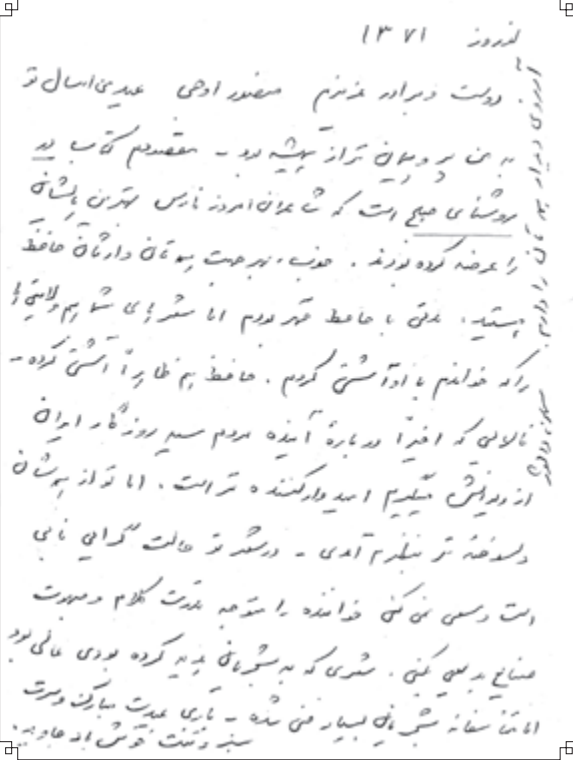 نوروز ۱۳۷۱
دوست و برادر عزیزم منصور اوجی عیدی امسال تو
به من پر و پیمان‌تر از همیشه بود - مقصودم کتاب در
روشنای صبح است که شاعران امروز فارس بهترین‌هایشان
را عرضه کرده بودند. خوب، بهر جهت همه‌تان وارثان حافظ
هستید. مدتی با حافظ قهر بودم اما شعرهای شما هم‌ولایتی‌ها
را که خواندم با او آشتی کردم. حافظ هم ظاهراً آشتی کرده -
فالهایی که اخیراً درباره آینده مردم سیه روزگار ایران
از دیوانش میگیرم امیدوارکننده‌تر است. اما تو از همه‌شان
دلسوخته‌تر بنظرم آمدی - در شعر تو حالت گرایی نابی
است و سعی نمی‌کنی خواننده را متوجه قدرت کلام و
صنایع بدیعی کنی. شعری که به شیرمان هدیه کرده بودی عالی بود
اما متأسفانه شیرمان بسیار غنی شده - باری عیدت مبارک و سرت
سبز و تنت خوش باد جاوید.
آرزوی دیدار همه‌تان را دارم.
سیمین دانشور